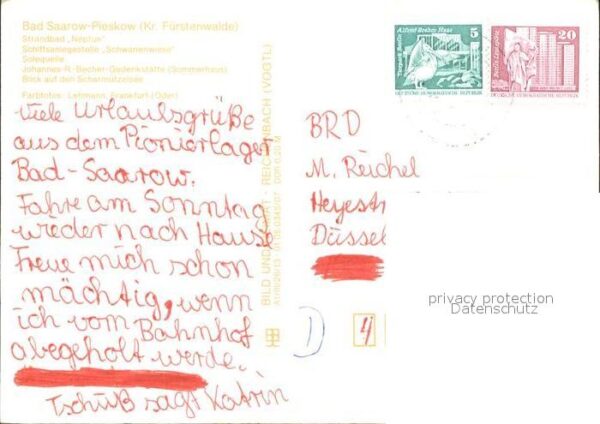 Bad Saarow-Pieskow (Kr. Fürstenwalde)
Strandbad „Neptun"
Schiffsanlegestelle „Schwanenwiese"
Solequelle
Johannes-R.-Becher-Gedenkstätte (Sommerhaus)
Blick auf den Scharmützelsee
Farbfotos: Lehmann, Frankfurt (Oder)
viele Urlaubsgrüße
aus dem Pionierlager
Bad-Saarow.
Fahre am Sonntag
wieder nach Hause
Freue mich schon
mächtig, wenn
ich vom Bahnhof
abegeholt werde.
Tschüß sagt Katrin
BILD UND REICHENBACH (VOGTL)
DDR 0,20 M
Alfred-Brehm-Haus
Tierpark Berlin
5
DEUTSCHE DEMOKRATISCHE REPUBLIK
20
Berlin, Leninplatz
DEUTSCHE DEMOKRATISCHE REPUBLIK
BRD
M. Reichel
Heyestr
Düssel
D
4
privacy protection
Datenschutz